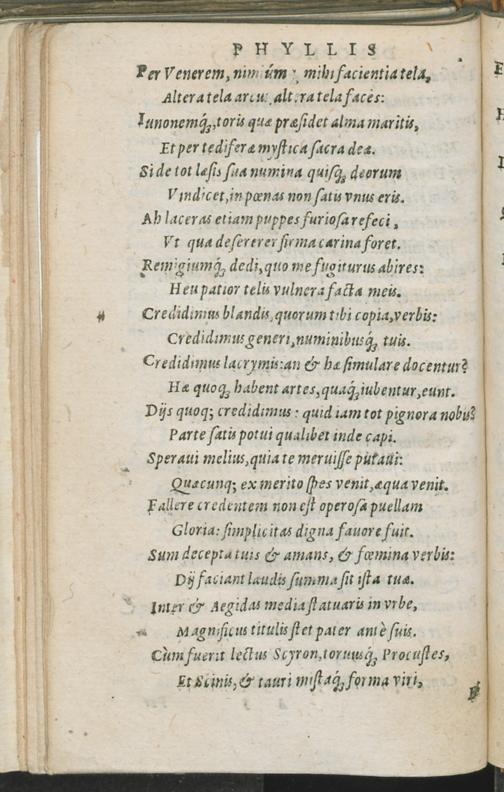 PHYLLIS
Per Venerem, nimiúm mihi facientia tela,
Altera tela arcu: altera tela faces:
Iunonemq́;, toris quæ præsidet alma maritis,
Et per tediferæ mystica sacra deæ.
Si de tot læsis sua numina quisq; deorum
Vindicet, in pœnas non satis vnus eris.
Ah laceras etiam puppes furiosa refeci,
Vt qua desererer firma carina foret.
Remigiumq́; dedi, quo me fugiturus abires:
Heu patior telis vulnera facta meis.
Credidimus blandis, quorum tibi copia, verbis:
Credidimus generi, numinibusq́; tuis.
Credidimus lacrymis: an & hæ simulare docentur?
Hæ quoq; habent artes, quaq́; iubentur, eunt.
Dijs quoq; credidimus: quid iam tot pignora nobis?
Parte satis potui qualibet inde capi.
Speraui melius, quia te meruisse putaui:
Quæcunq; ex merito spes venit, æqua venit.
Fallere credentem non est operosa puellam
Gloria: simplicitas digna fauore fuit.
Sum decepta tuis & amans, & fœmina verbis:
Dij faciant laudis summa sit ista tuæ.
Inter & Aegidas media statuaris in vrbe,
Magnificus titulis stet pater antè suis.
Cùm fuerit lectus Scyron, toruusq́; Procustes,
Et Scinis, & tauri mistaq́; forma viri,